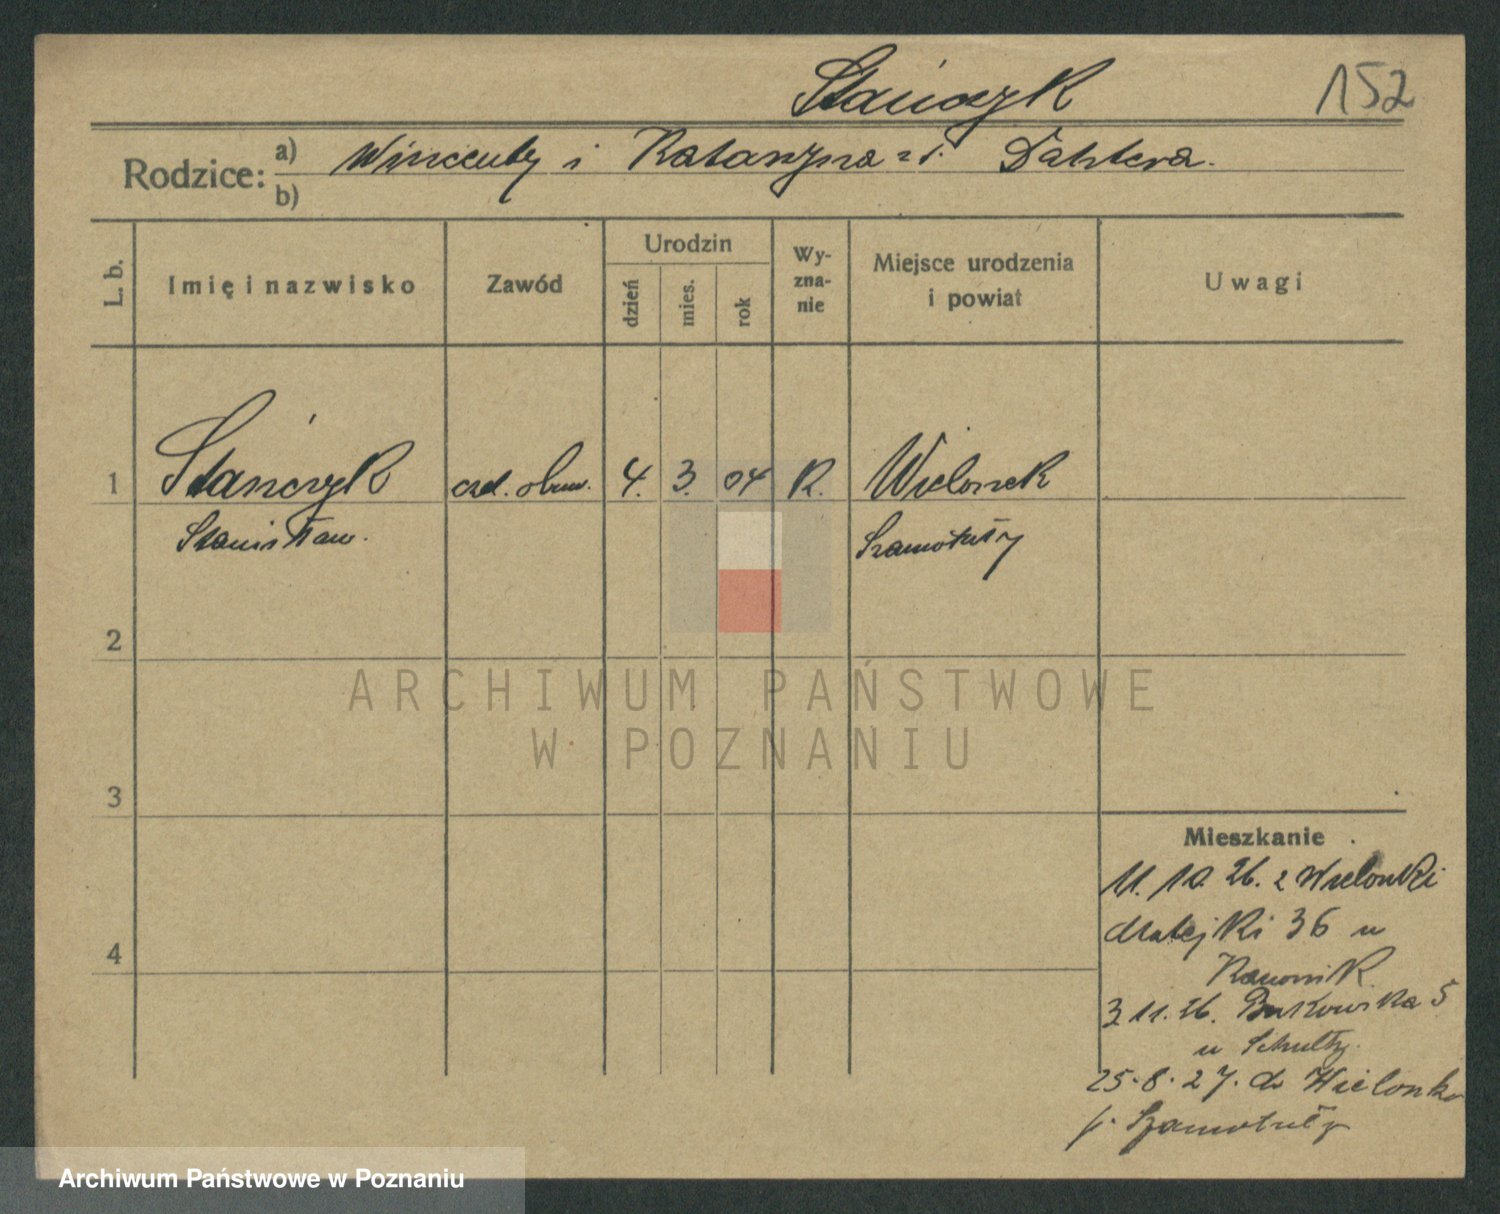 Stańczyk
152
Rodzice: a) Wincenty i Katarzyna z d.
b)
L. b.
Imię i nazwisko
Zawód
Urodzin
dzień
mies.
rok
Wy-
zna-
nie
Miejsce urodzenia
i powiat
Uwagi
1 Stańczyk czel. obuw. 4. 3. 04 R. Wielonek
Stanisław. Szamotuły
2
ARCHIWUM PAŃSTWOWE
W POZNANIU
3
Mieszkanie
11. 10. 26. z Wielonki
Matejki 36 u
4
3.11.26. Bukowska 5
u Schultz.
25.8.27. do Wielonka
p. Szamotuły
Archiwum Państwowe w Poznaniu